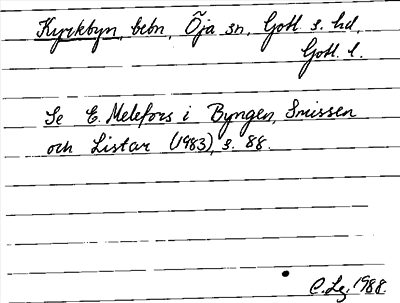 Kyrkbyn, bebn, Öja sn, Gotl. s. hd,
Gotl. l.
Se E. Melefors i Byngen, Smissen
och Listar (1983), s. 88.
C. Lg. 1988